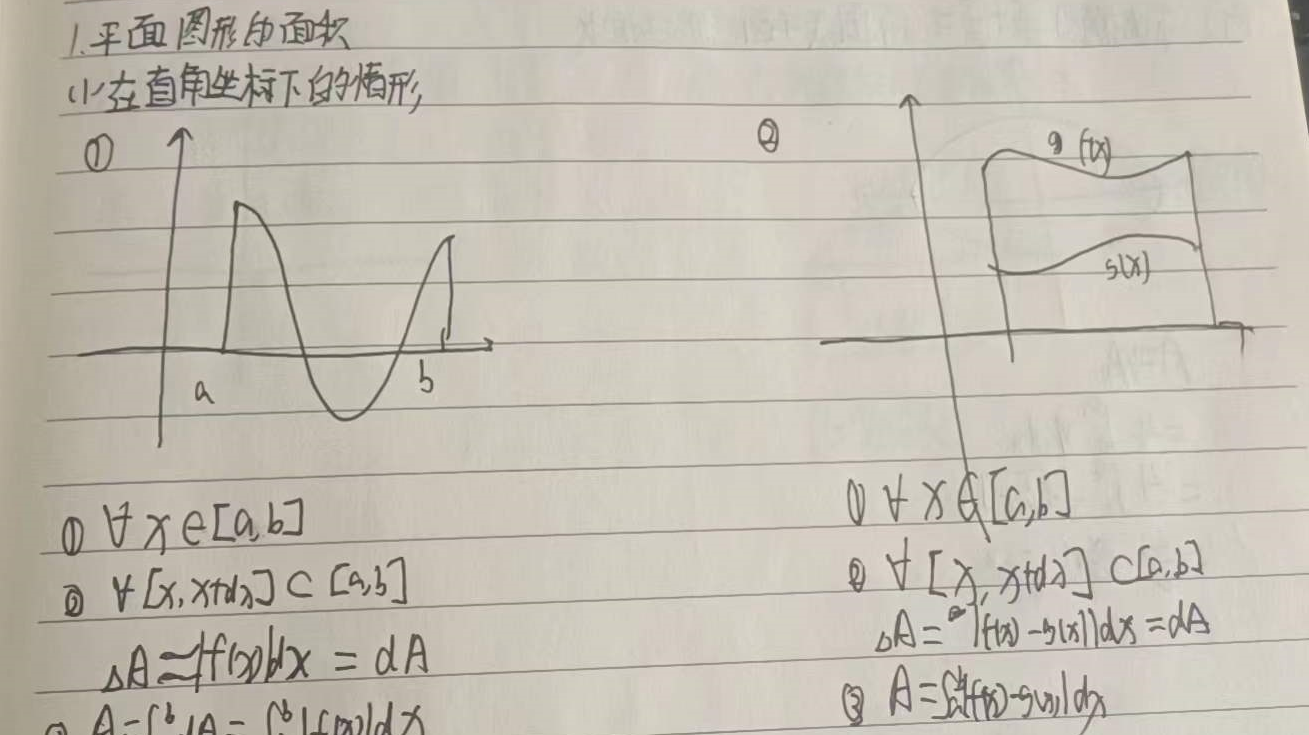 1.平面图形的面积
(1)在直角坐标下的情形
①
a
b
① ∀ x∈[a,b]
② ∀ [x, x+dx] ⊂ [a,b]
ΔA≈|f(x)|dx = dA
③ A=∫ₐᵇ dA = ∫ₐᵇ |f(x)|dx
②
f(x)
g(x)
① ∀ x∈[a,b]
② ∀ [x, x+dx] ⊂[a,b]
ΔA= |f(x)-g(x)|dx=dA
③ A=∫ₐᵇ|f(x)-g(x)|dx